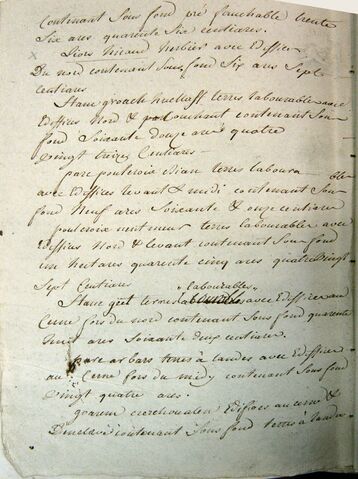 Contenant Sous fond pré fauchable trente
Six ares quarente Six centiares.
herbier avec Edffices
Du nord contenant Sous fond Six ares Sept
Centiares
Stanc groach terres labourable avec
Edffices Nord & couchant contenant Sou
fond Soixante douze ares quatre
Vingt treize Centiares
parc poulcroix Bian terres laboura ble
avec Edffices levant & midi contenant Sou
fond Neuf ares Soixante & onze centiares
poulcroix terres labourables avec
Edffices Nord & levant contenant Sou fond
un hectares quarente cinq ares quatre Vingt
Sept Centiares
labourables
Stanc guet terres avec Edffices au
Cerne fors du nord contenant Sous fond quarente
ares Soixante deux centiares.
parc ar bars terres à landes avec Edffices
au Cerne fors du midy contenant Sous fond
Vingt quatre ares.
goarem Edifices au cerne &
contenant Sous fond terres à landes